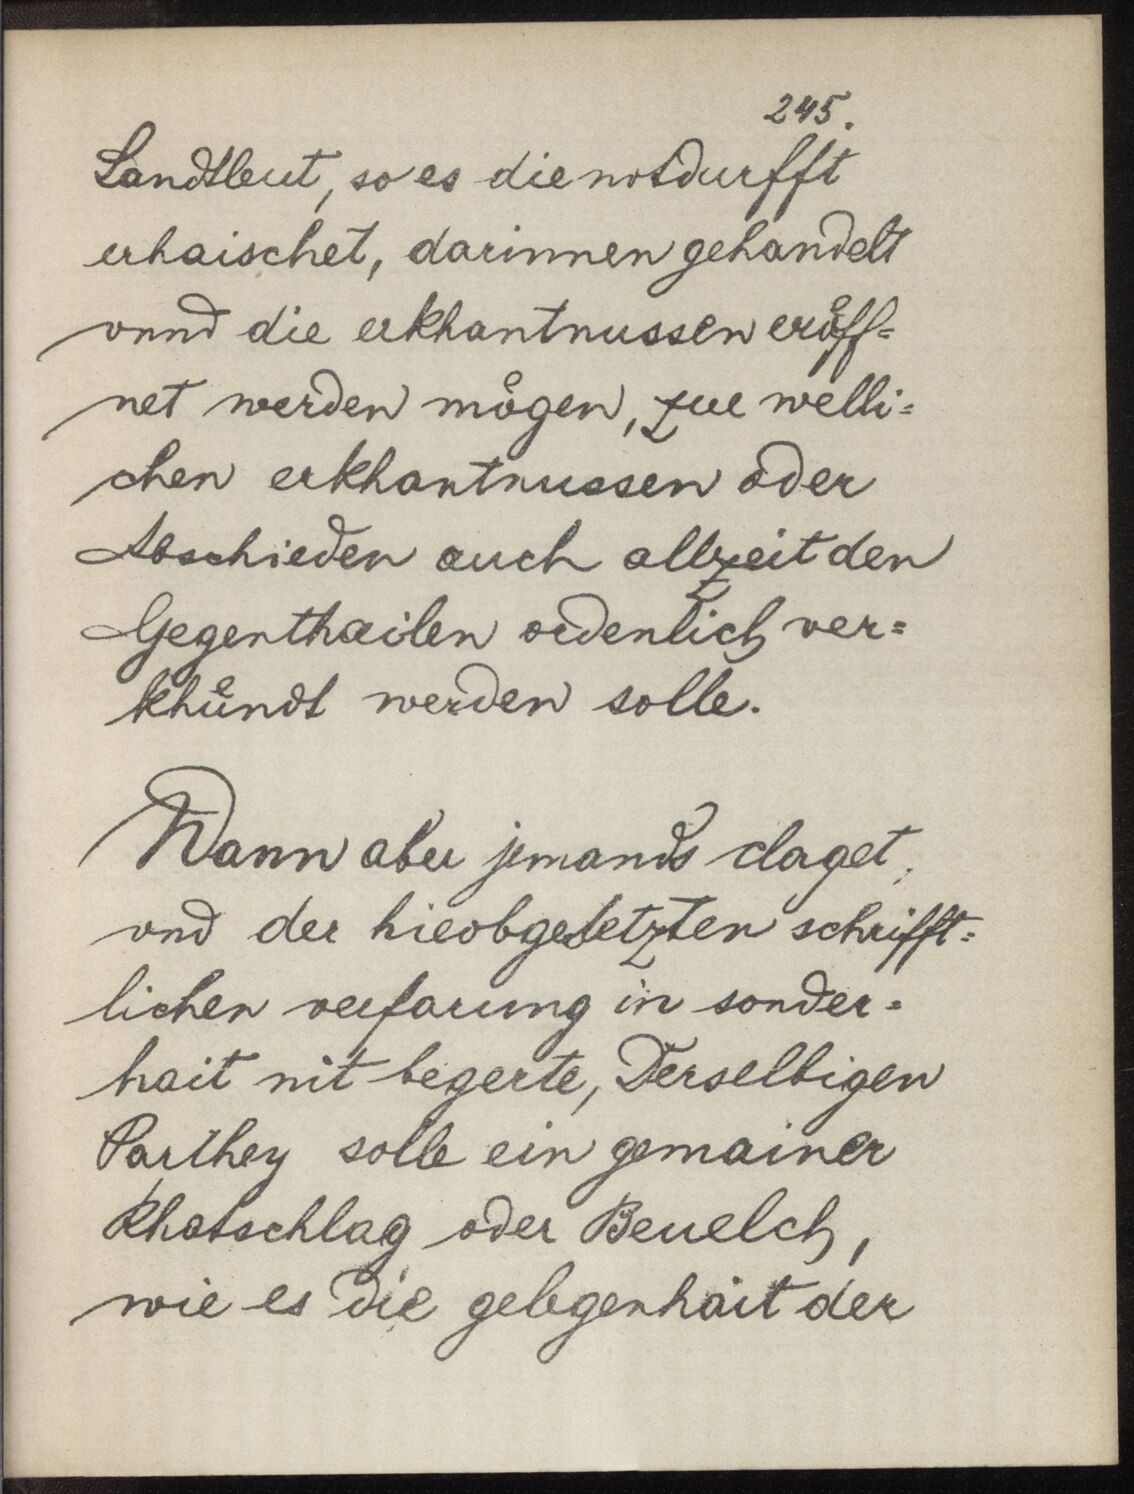 245.
Landtleut, so es die notdurfft
erhaischet, darinnen gehandelt
vnnd die erkhantnussen eröff=
net werden mögen, zue welli=
chen erkhantnussen oder
Abschieden auch allzeit den
Gegenthailen ordenlich ver=
khündt werden solle.
Wann aber jemands claget,
vnd der hieobgesetzten schrifft=
lichen verfarung in sonder=
hait nit begerte, Derselbigen
Parthey solle ein gemainer
Rhatschlag oder Beuelch,
wie es die gelegenhait der